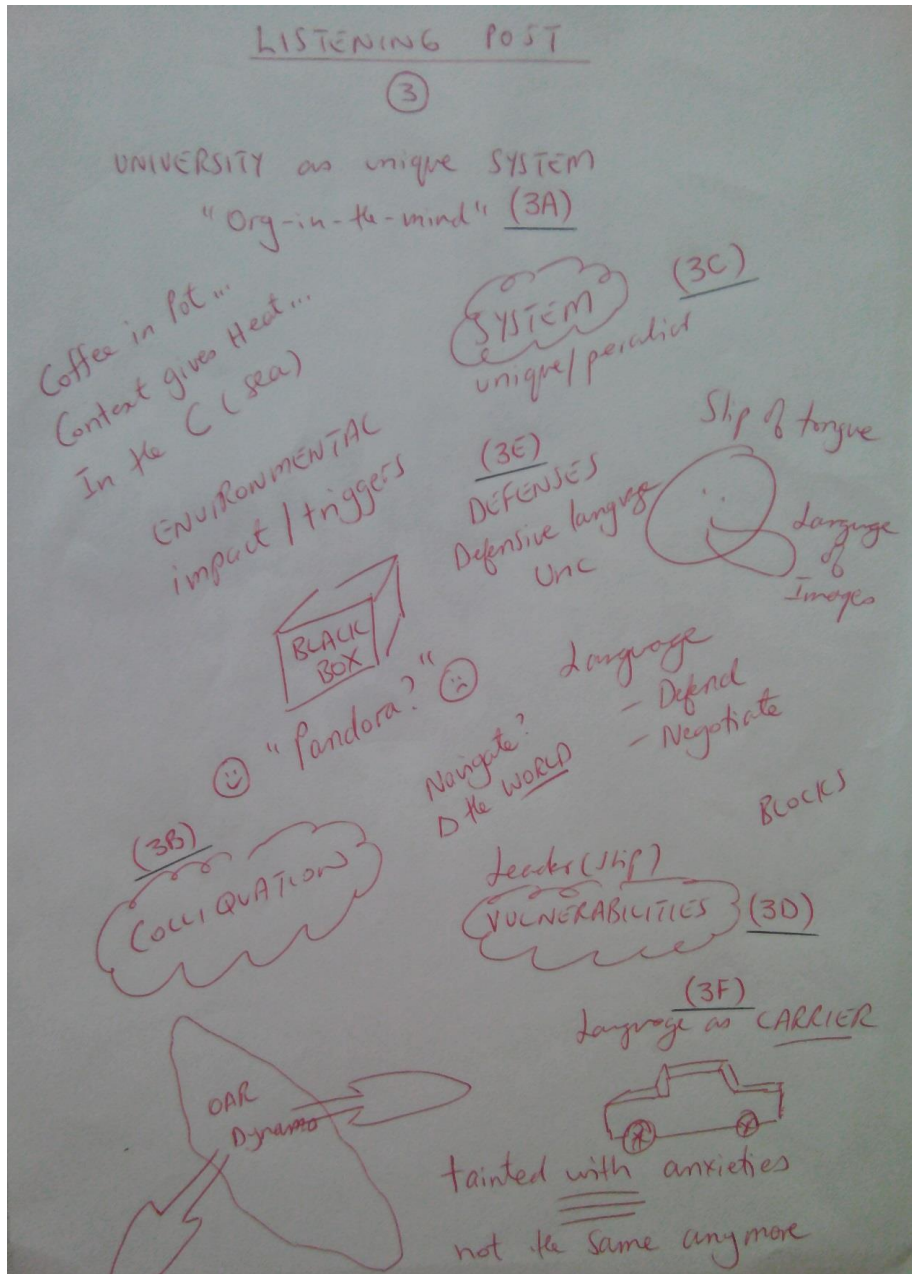 LISTENING POST
3
UNIVERSITY as unique SYSTEM
"Org-in-the-mind" (3A)
Coffee in Pot...
Context gives Heat...
In the C (sea)
(3C)
SYSTEM
unique/
ENVIRONMENTAL
impact/triggers
(3E)
DEFENSES
Defensive language
Unc
Slip of tongue
Language
of
Images
BLACK
BOX
"Pandora?"
Language
- Defend
- Negotiate
Navigate?
D the WORLD
BLOCKS
(3B)
COLLIQUATION
Leader(ship)
VULNERABILITIES (3D)
(3F)
Language as CARRIER
OAR
Dynamo
tainted with anxieties
not the same anymore